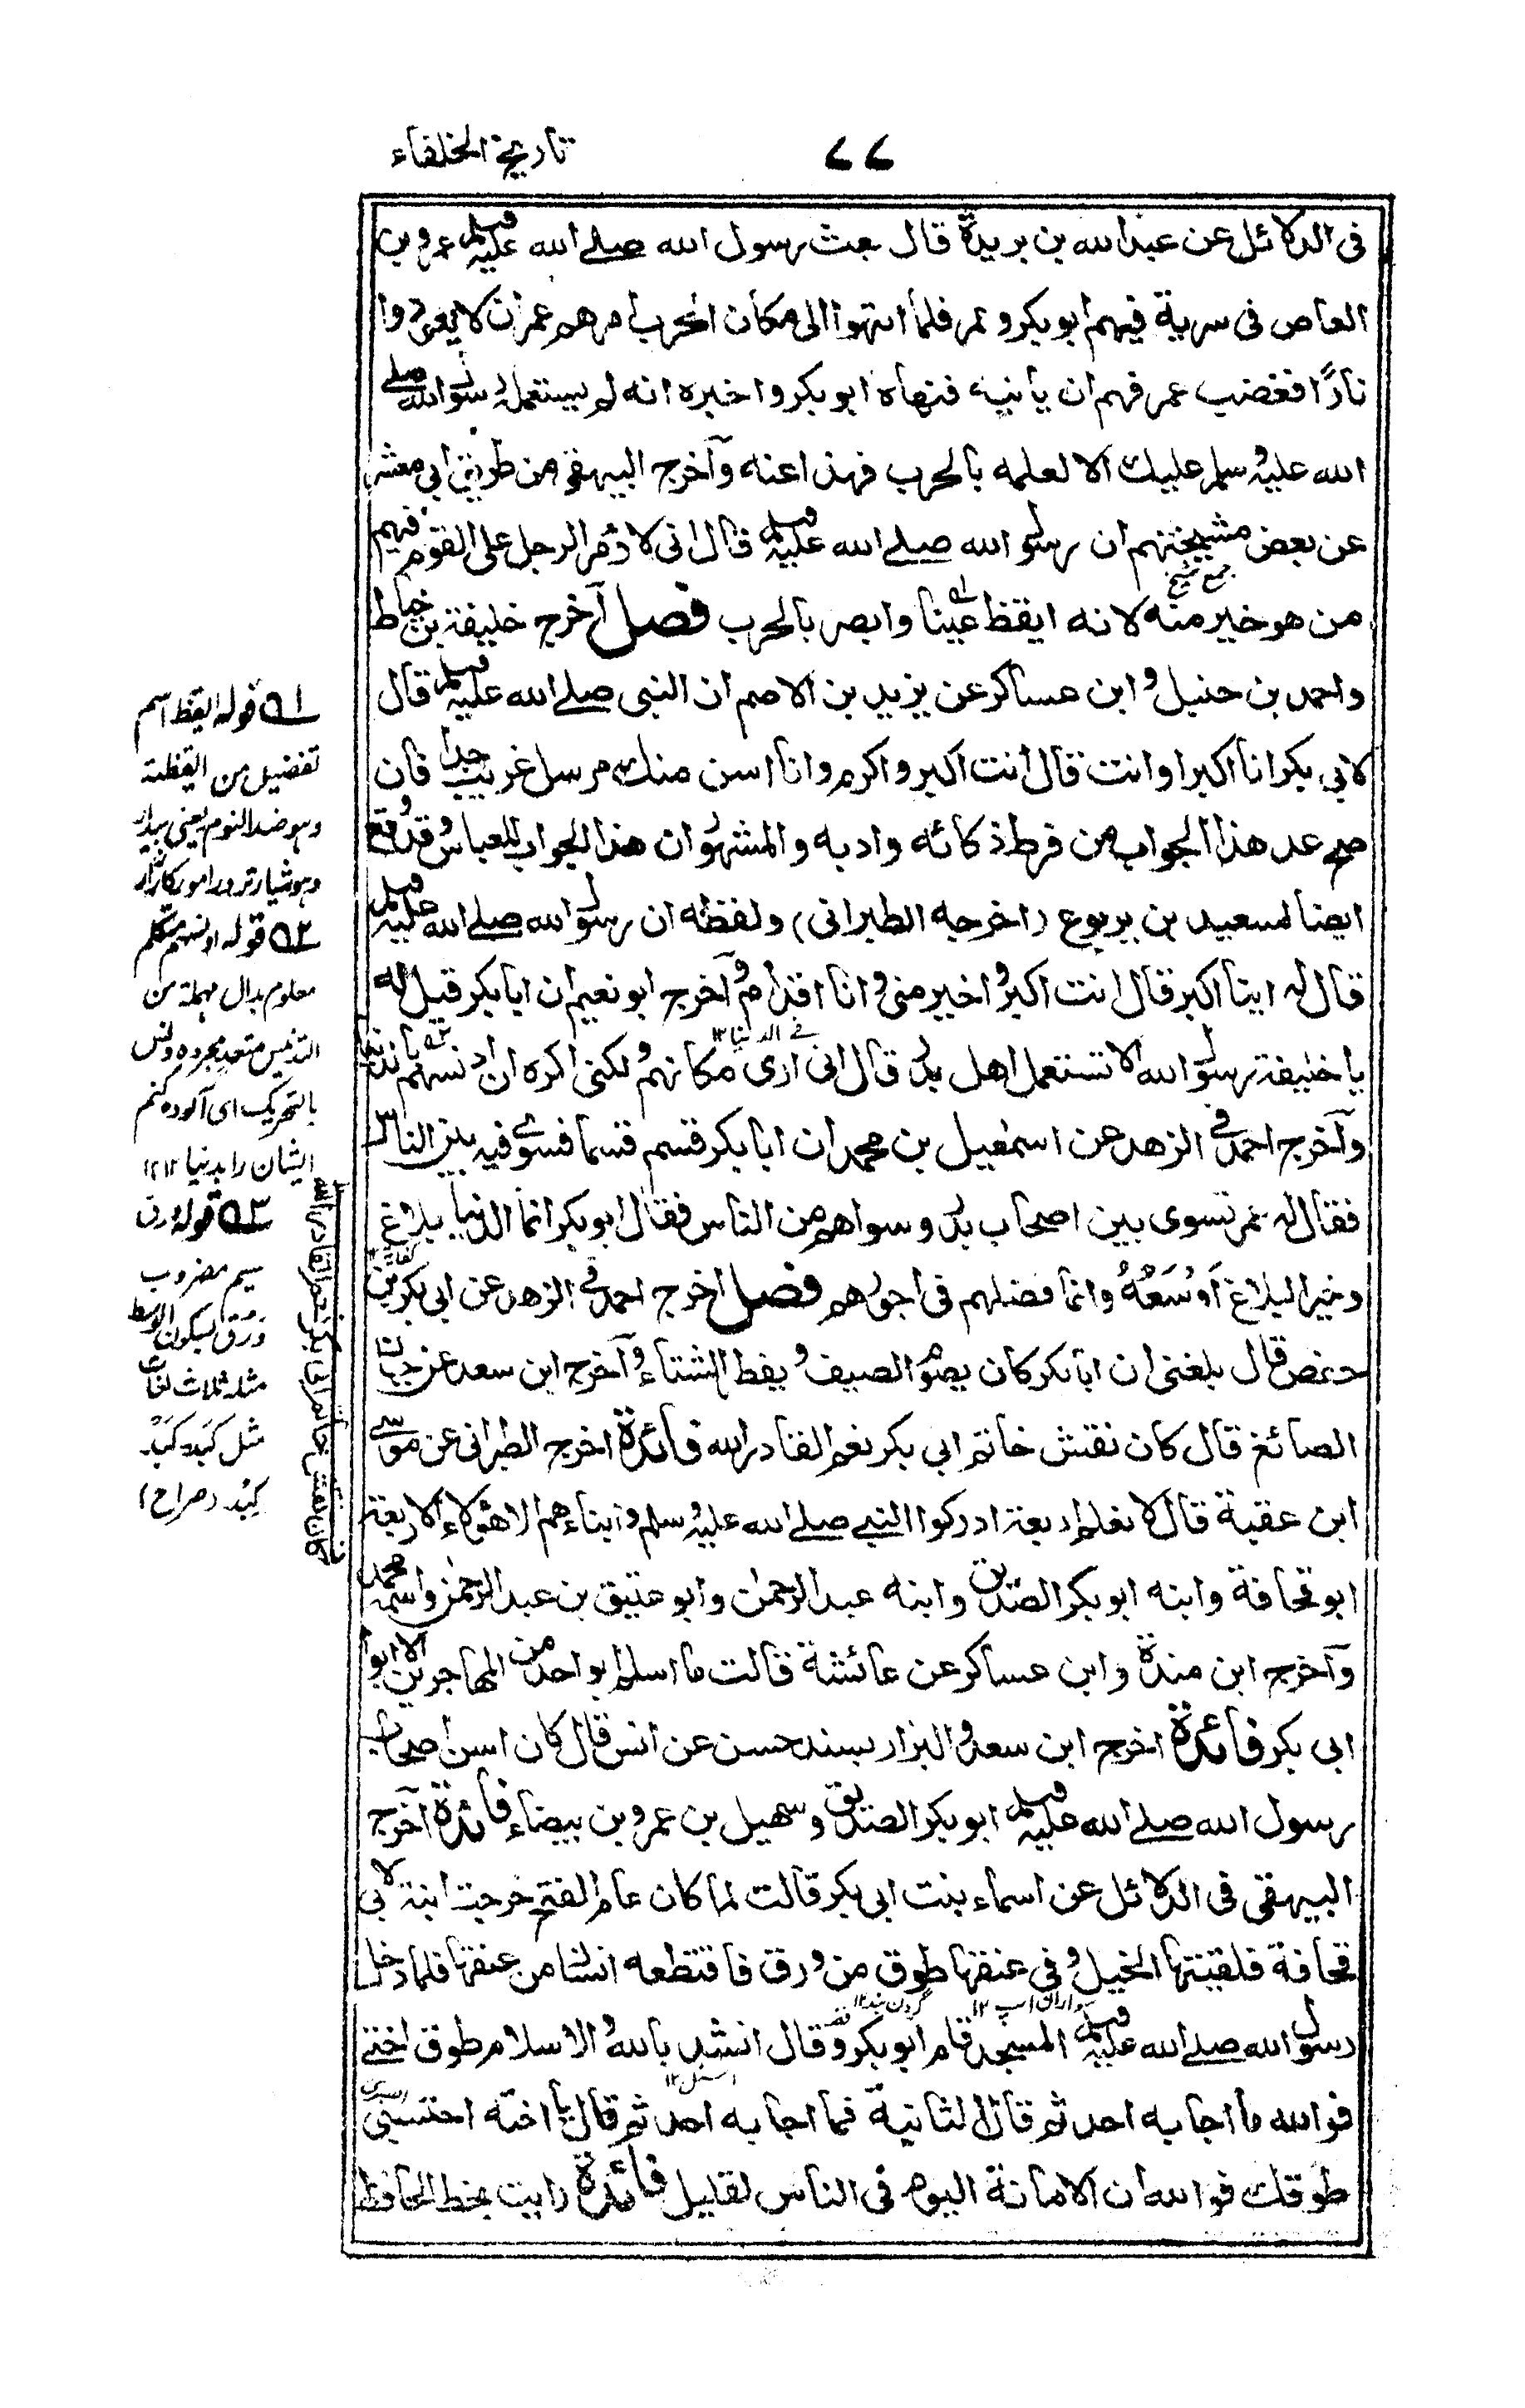 تاريخ الخلفاء
٧٧
فى الدلائل عن عبدالله بن بريدة قال بعث رسول الله صلے الله عليه وسلم عمرو بن
العاص فى سرية فيهم ابو بكر وعمر فلما انتهوا الى مكان الحرب امرهم عمران لا
نارًا فغضب عمر فهم ان يأتيه فنهاه ابو بكر واخبره انه لم يستعمله رسول الله صلے
الله عليه وسلم عليك الا لعلمه بالحرب فهدا عنه وآخرج البيهقى من طريق ابى معشر
عن بعض مشيختهم ان رسول الله صلے الله عليه وسلم قال انى لاؤمر الرجل على القوم فيهم
جمع شيخ
من هو خير منه لانه ايقظ عينا وابصر بالحرب فصل آخرج خليفة بن خياط
واحمد بن حنبل وابن عساكر عن يزيد بن الاصم ان النبى صلے الله عليه وسلم قال
لابى بكر انا اكبر او انت قال انت اكبر واكرم وانا اسن منك مرسل غريب جدا فان
صح عد هذا الجواب من فرط ذكائه وادبه والمشهور ان هذا الجواب للعباس وقد وقع
ايضا لسعيد بن يربوع (اخرجه الطبرانى) ولفظه ان رسول الله صلے الله عليه وسلم
قال له اينا اكبر قال انت اكبر واخير منى وانا اقدم وآخرج ابو نعيم ان ابا بكر قيل له
يا خليفة رسول الله الا تستعمل اهل بدر قال انى ارى مكانهم ولكنى اكره ان ادنسهم بالدنيا
فى الدنيا ١٢
وآخرج احمد فى الزهد عن اسمعيل بن محمد ان ابا بكر قسم قسما فسوى فيه بين الناس
فقال له عمر تسوى بين اصحاب بدر وسواهم من الناس فقال ابو بكر انما الدنيا بلاغ
وخير البلاغ اَوْسَعُهُ وانما فضلهم فى اجورهم فصل اخرج احمد فى الزهد عن ابى بكر بن
حفص قال بلغنى ان ابا بكر كان يصوم الصيف ويفطر الشتاء وآخرج ابن سعد عن حيان
الصائغ قال كان نقش خاتم ابى بكر نعم القادر الله فائدة اخرج الطبرانى عن موسى
ابن عقبة قال لا نعلم اربعة ادركوا النبى صلے الله عليه وسلم وابناءهم الا هؤلاء الاربعة
ابو قحافة وابنه ابو بكر الصديق وابنه عبد الرحمن وابو عتيق بن عبد الرحمن واسمه محمد
وآخرج ابن مندة وابن عساكر عن عائشة قالت ما اسلم ابو احد من المهاجرين الا ابوا
ابى بكر فائدة اخرج ابن سعد والبزار بسند حسن عن انس قال كان اسن اصحاب
رسول الله صلے الله عليه وسلم ابو بكر الصديق وسهيل بن عمرو بن بيضاء فائدة آخرج
البيهقى فى الدلائل عن اسماء بنت ابى بكر قالت لما كان عام الفتح خرجت ابنة لابى
قحافة فلقيتها الخيل وفى عنقها طوق من ورق فاقتطعه انسان من عنقها فلما دخل
سواران اسپ ١٢ گردن بند ١٢
رسول الله صلے الله عليه وسلم المسجد قام ابو بكر وقال انشد بالله والاسلام طوق اختى
فوالله ما اجابه احد ثم قال الثانية فما اجابه احد ثم قال يا اخته احتسبى
طوقك فوالله ان الامانة اليوم فى الناس لقليل فائدة رايت بخط الحافظ
١ قوله ايقظ اسم
تفضيل من اليقظة
وهو ضد النوم يعنى بيدار
وهوشيارتر در امور كارزار
٢ قوله ادنسهم متكلم
معلوم بدال مهملة من
التدنيس متعد مجرده دنس
بالتحريك اى آلوده كنم
ايشان را بدنيا ١٢
٣ قوله ورق
سيم مضروب
ورق بسكون الوسط
مثله ثلاث لغات
مثل كَبِد كَبْد
كِبْد (صراح)